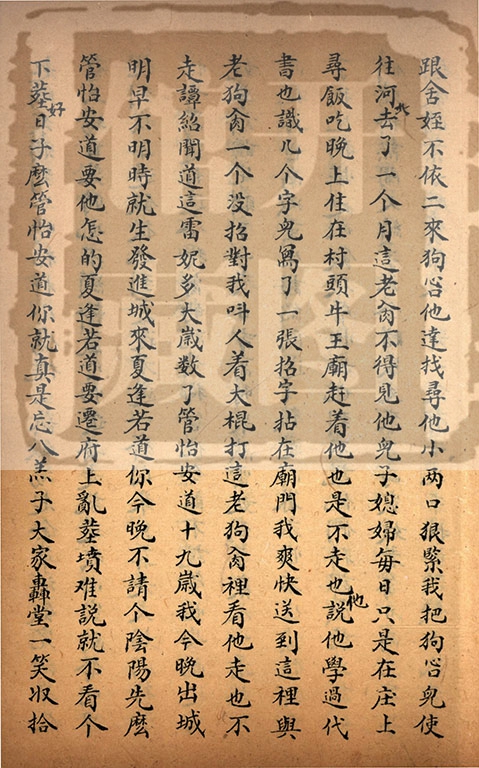 跟舍姪不依二來狗㕾他達找尋他小两口狠緊我把狗㕾兒使
往河北去了一个月這老肏不得見他兒子媳婦每日只是在庄上
尋飯吃晚上住在村頭牛王廟赶着他也是不走他也說他學過代
書也識几个字兒寫了一張招字拈在廟門我爽快送到這裡與
老狗肏一个没招對我叫人着大棍打這老狗肏裡看他走也不
走譚紹聞道這雷妮多大歲数了管怡安道十九歲我今晚出城
明早不明時就生發進城來夏逢若道你今晚不請个陰陽先麽
管怡安道要他怎的夏逢若道要遷府上亂塟墳难説就不看个
下塟好日子麽管怡安道你就真是忘八羔子大家轟堂一笑収拾